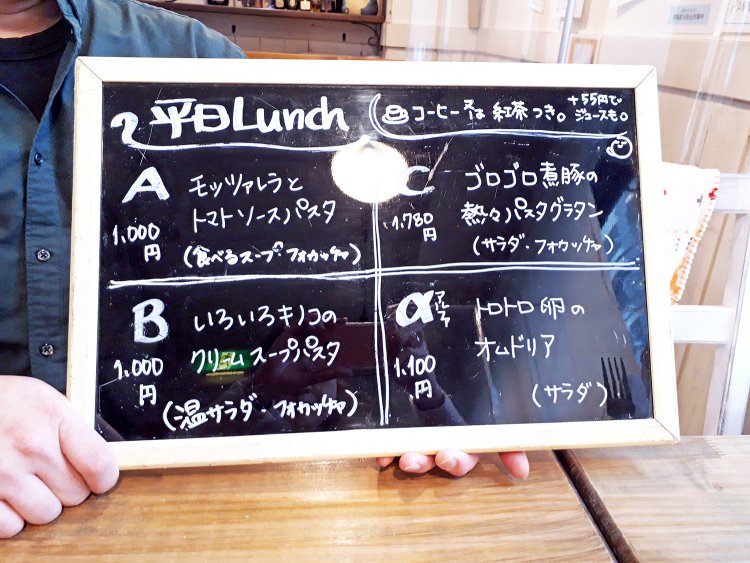 平日Lunch
コーヒー又は紅茶つき。
+55円で
ジュースも。
A モッツァレラと
トマトソースパスタ
1,000
円
(食べるスープ・フォカッチャ)
B いろいろキノコの
クリームスープパスタ
1,000
円
(温サラダ・フォカッチャ)
C ゴロゴロ煮豚の
熱々パスタグラタン
1,780
円
(サラダ・フォカッチャ)
α アルファ トロトロ卵の
オムドリア
1,100
円
(サラダ)